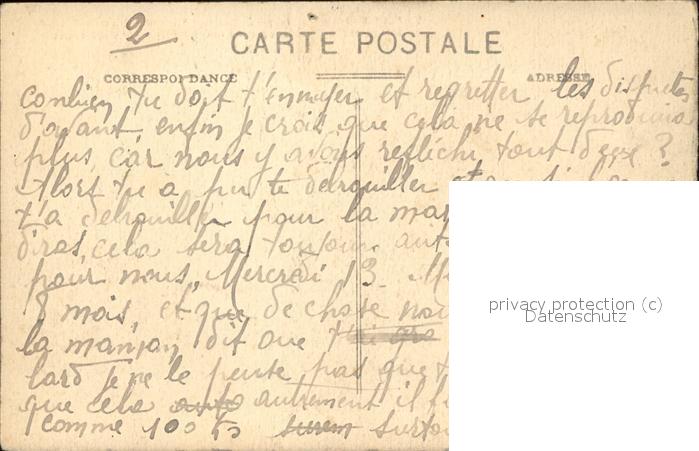 2
CARTE POSTALE
CORRESPONDANCE
ADRESSE
conbien tu doit t'ennuyer et regretter les disputes
d'avant enfin je crois que cela ne se reproduira
plus, car nous y avons réfléchi tout deux ?
Alors tu a pu te debrouiller et
t'a debrouiller pour la
diras, cela sera toujours
pour nous, Mercredi 13.
8 mois, et que de chose
la dit que
lard je ne le pas que
que cela autrement il
comme 100 surtou
privacy protection (c)
Datenschutz